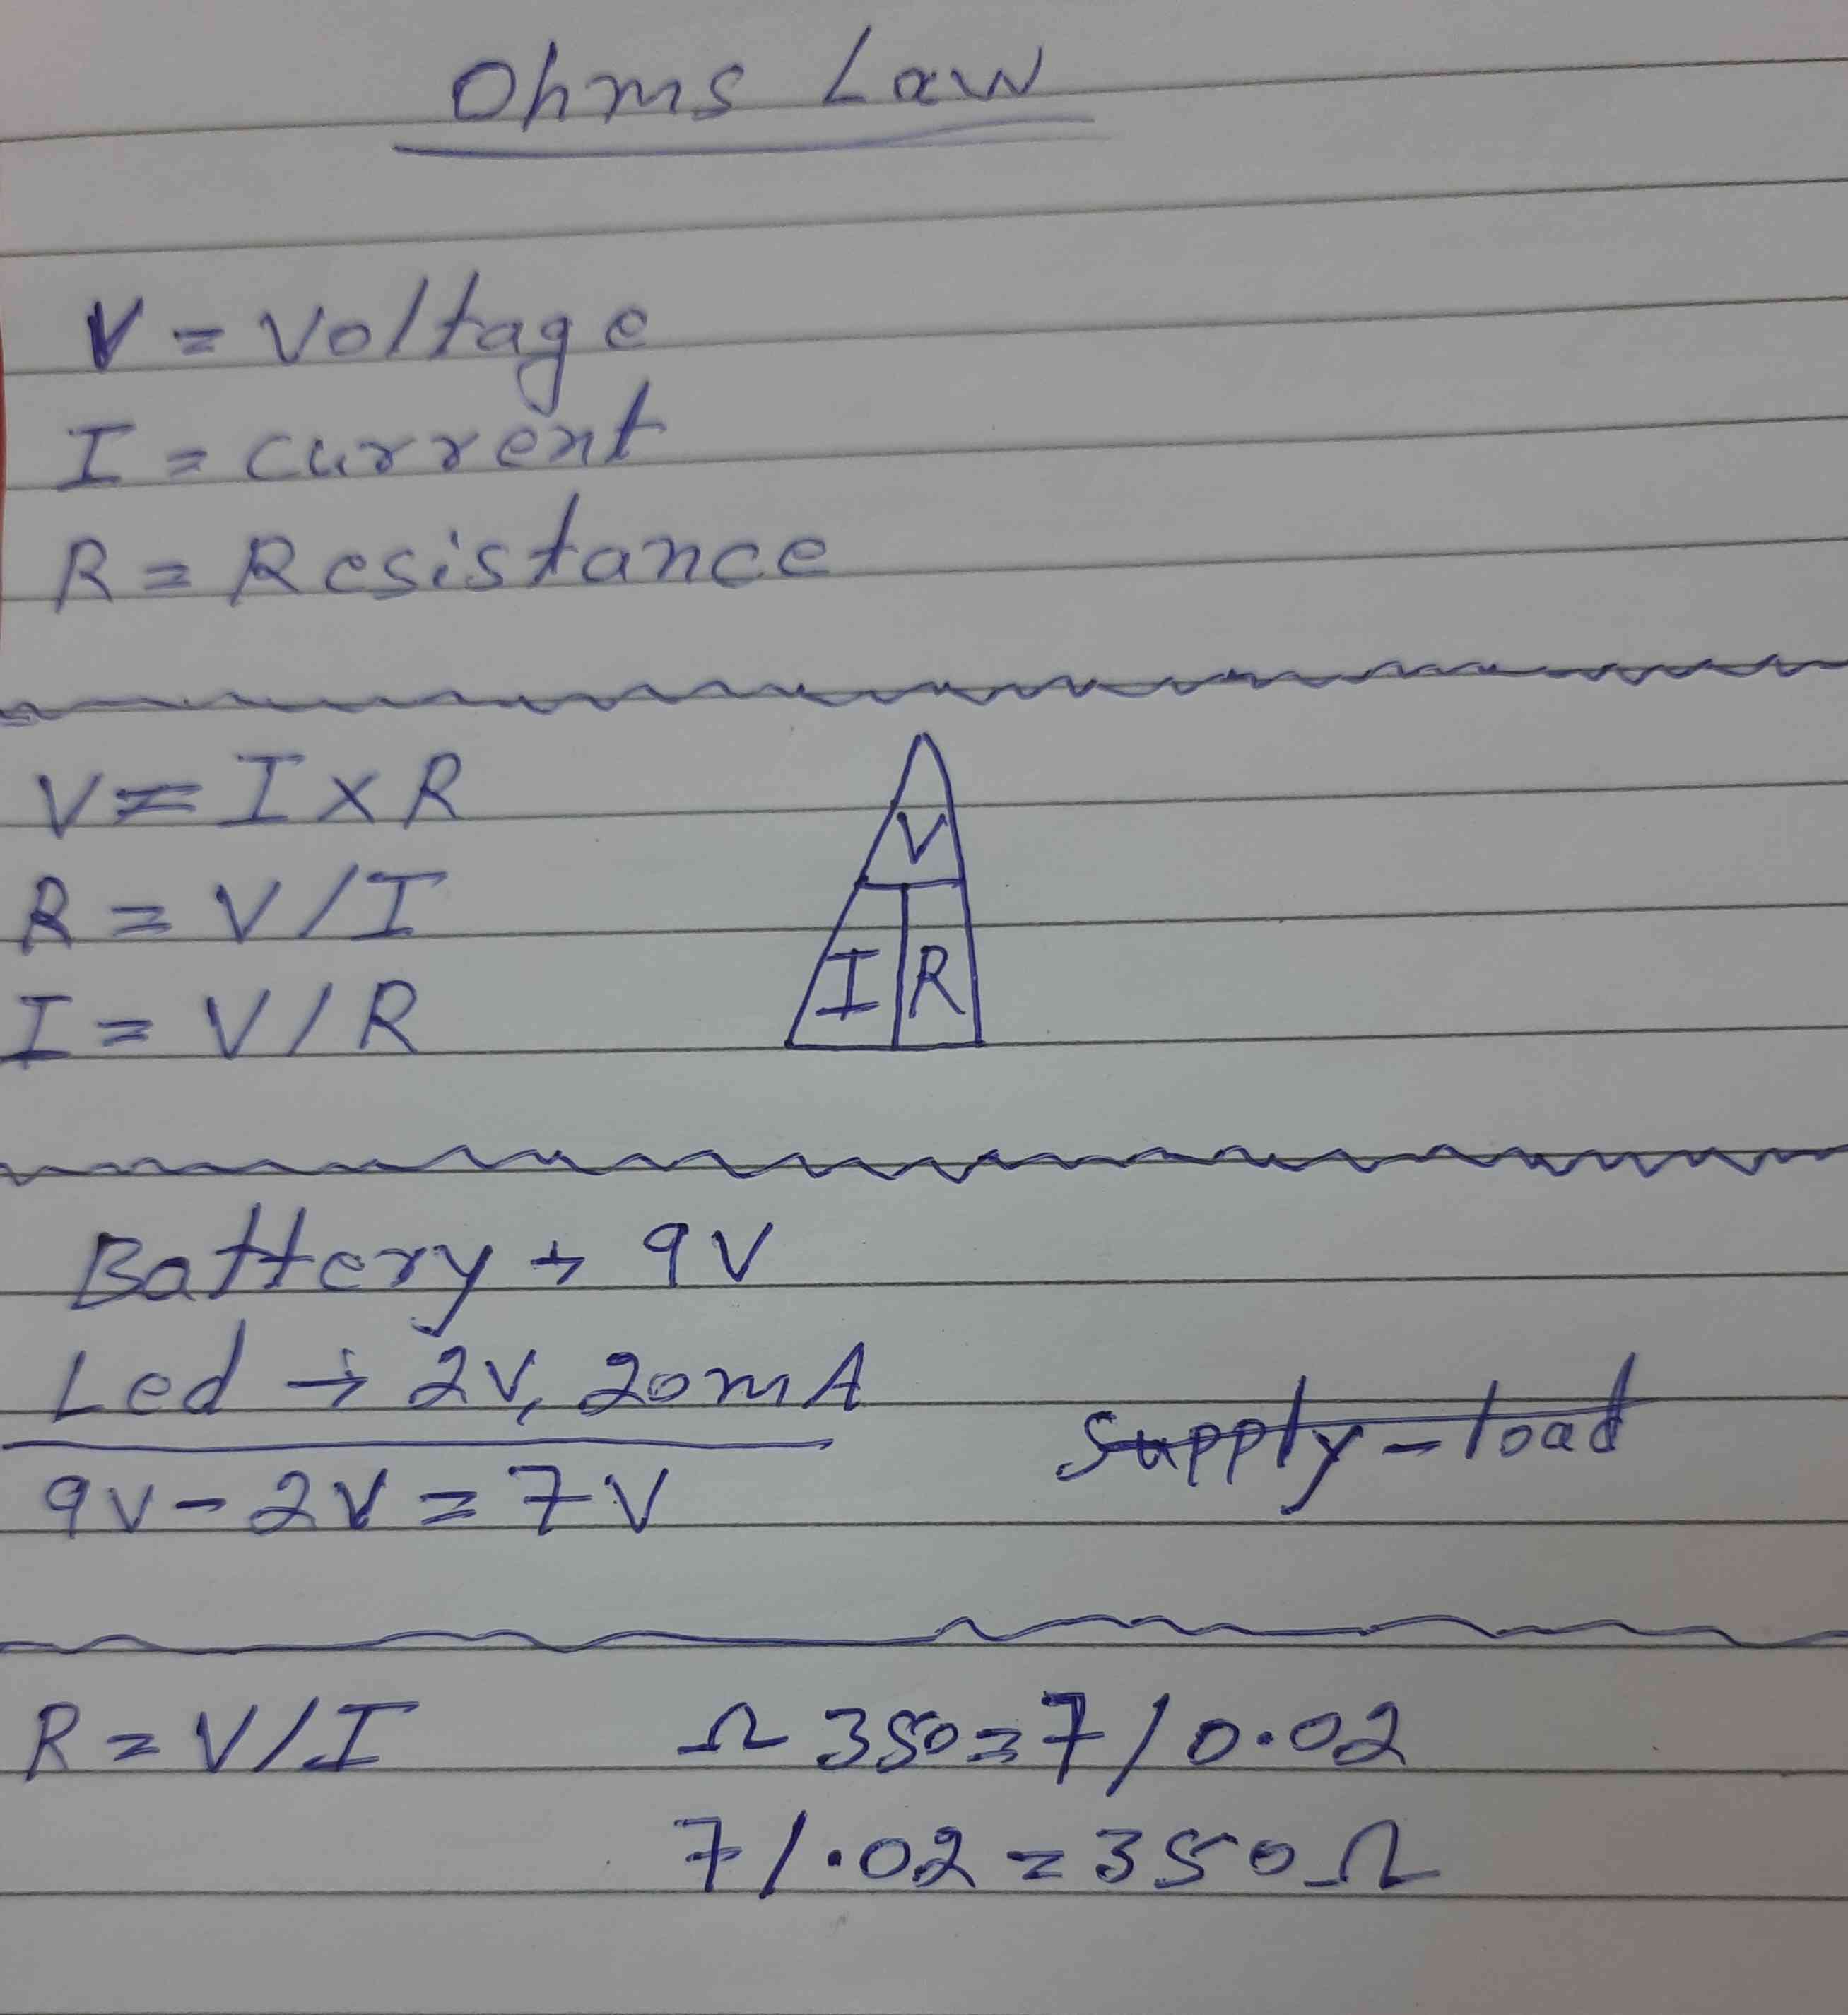 Ohms Law
V = Voltage
I = current
R = Resistance
V = I x R
R = V/I
I = V/R
V
I R
Battery → 9V
Led → 2V, 20mA
supply - load
9V - 2V = 7V
R = V/I
Ω 350 = 7/0.02
7/.02 = 350Ω